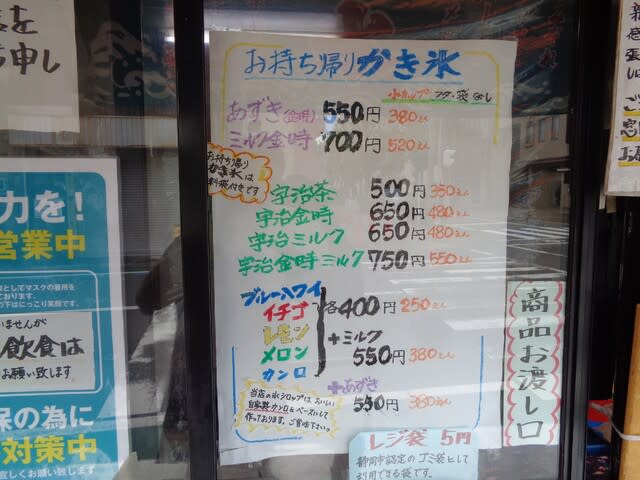 お持ち帰りかき氷
小カップ フタ・袋なし
あずき(金時) 550円 380えん
ミルク金時 700円 520えん
お持ち帰り
かき氷は
料袋付きです
宇治茶 500円 350えん
宇治金時 650円 480えん
宇治ミルク 650円 480えん
宇治金時ミルク 750円 550えん
ブルーハワイ
イチゴ
レモン
メロン
カンロ
各400円 250えん
+ミルク
550円 380えん
+あずき
550円 380えん
当店の氷シロップはおいしい
自家製カンロをベースにして
作っております。ご賞味下さい。
レジ袋 5円
静岡市認定のゴミ袋として
利用できる袋です。
商品お渡し口
力を!
営業中
いませんが
飲食は
お願い致します
保の為に
対策中
宜しくお願い致します
を
申し